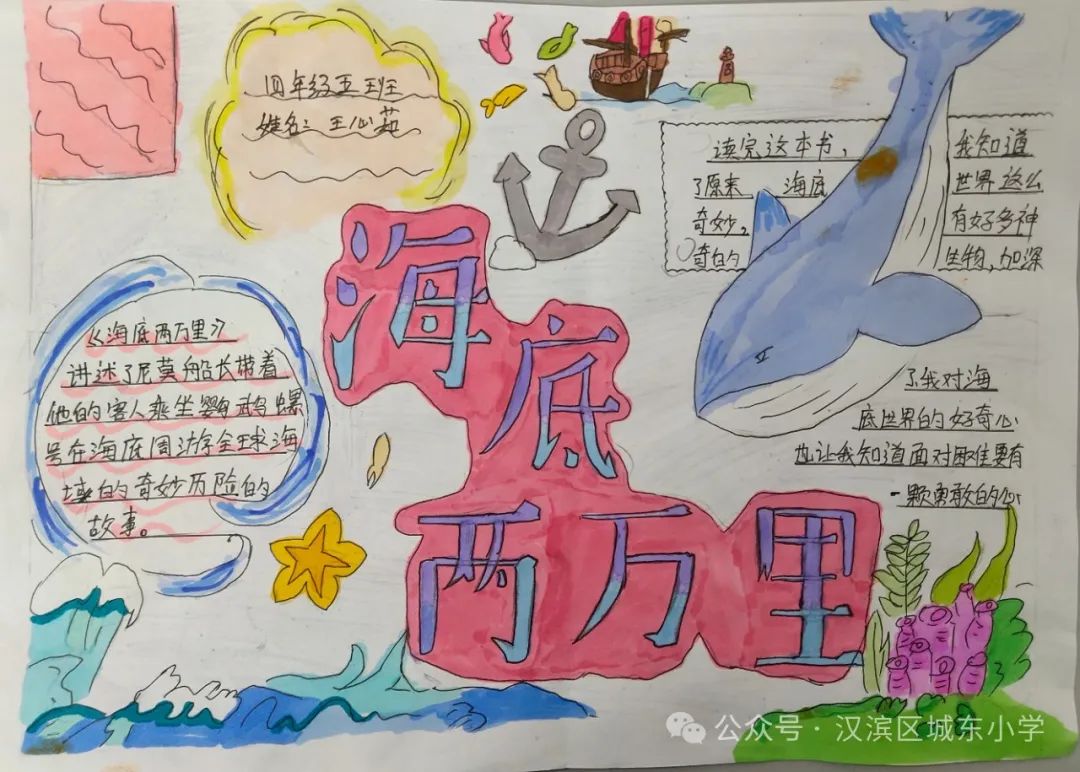 四年级五班
姓名：王心茹
读完这本书，我知道
了原来海底世界这么
奇妙。有好多神
奇的生物，加深
了我对海
底世界的好奇心
也让我知道面对困难要有
一颗勇敢的心
海底两万里
《海底两万里》
讲述了尼莫船长带着
他的客人乘坐鹦鹉螺
号在海底周游全球海
域的奇妙历险的
故事。
公众号·汉滨区城东小学